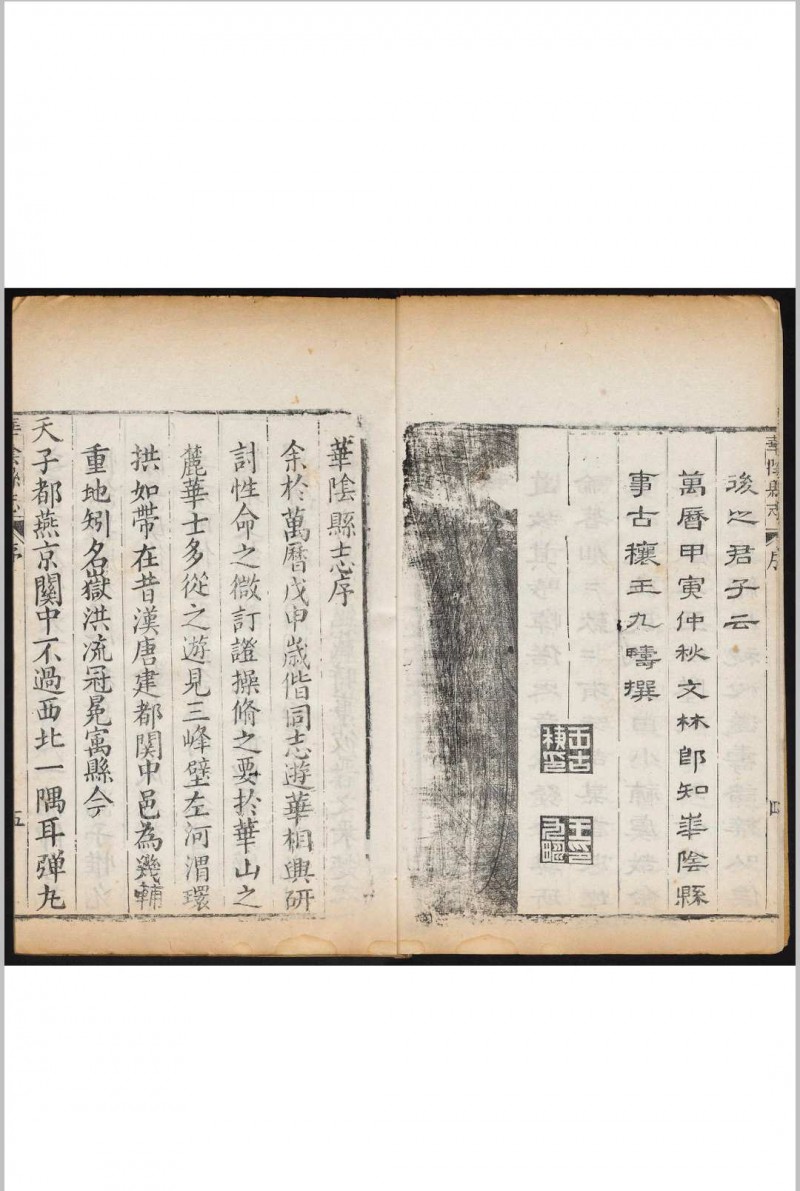 華陰縣志
序
四
後之君子云
萬曆甲寅仲秋文林郎知華陰縣
事古穰王九疇撰
華陰縣志序
余於萬曆戊申歲偕同志遊華相與研
討性命之微訂證操脩之要於華山之
麓華士多從之遊見三峰壁左河渭環
拱如帶在昔漢唐建都関中邑為幾輔
重地矧名嶽洪流冠冕寓縣今
天子都燕京関中不過西北一隅耳彈丸
華陰縣志
序
五